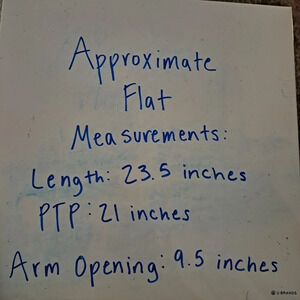 Approximate
Flat
Measurements:
Length: 23.5 inches
PTP: 21 inches
Arm Opening: 9.5 inches